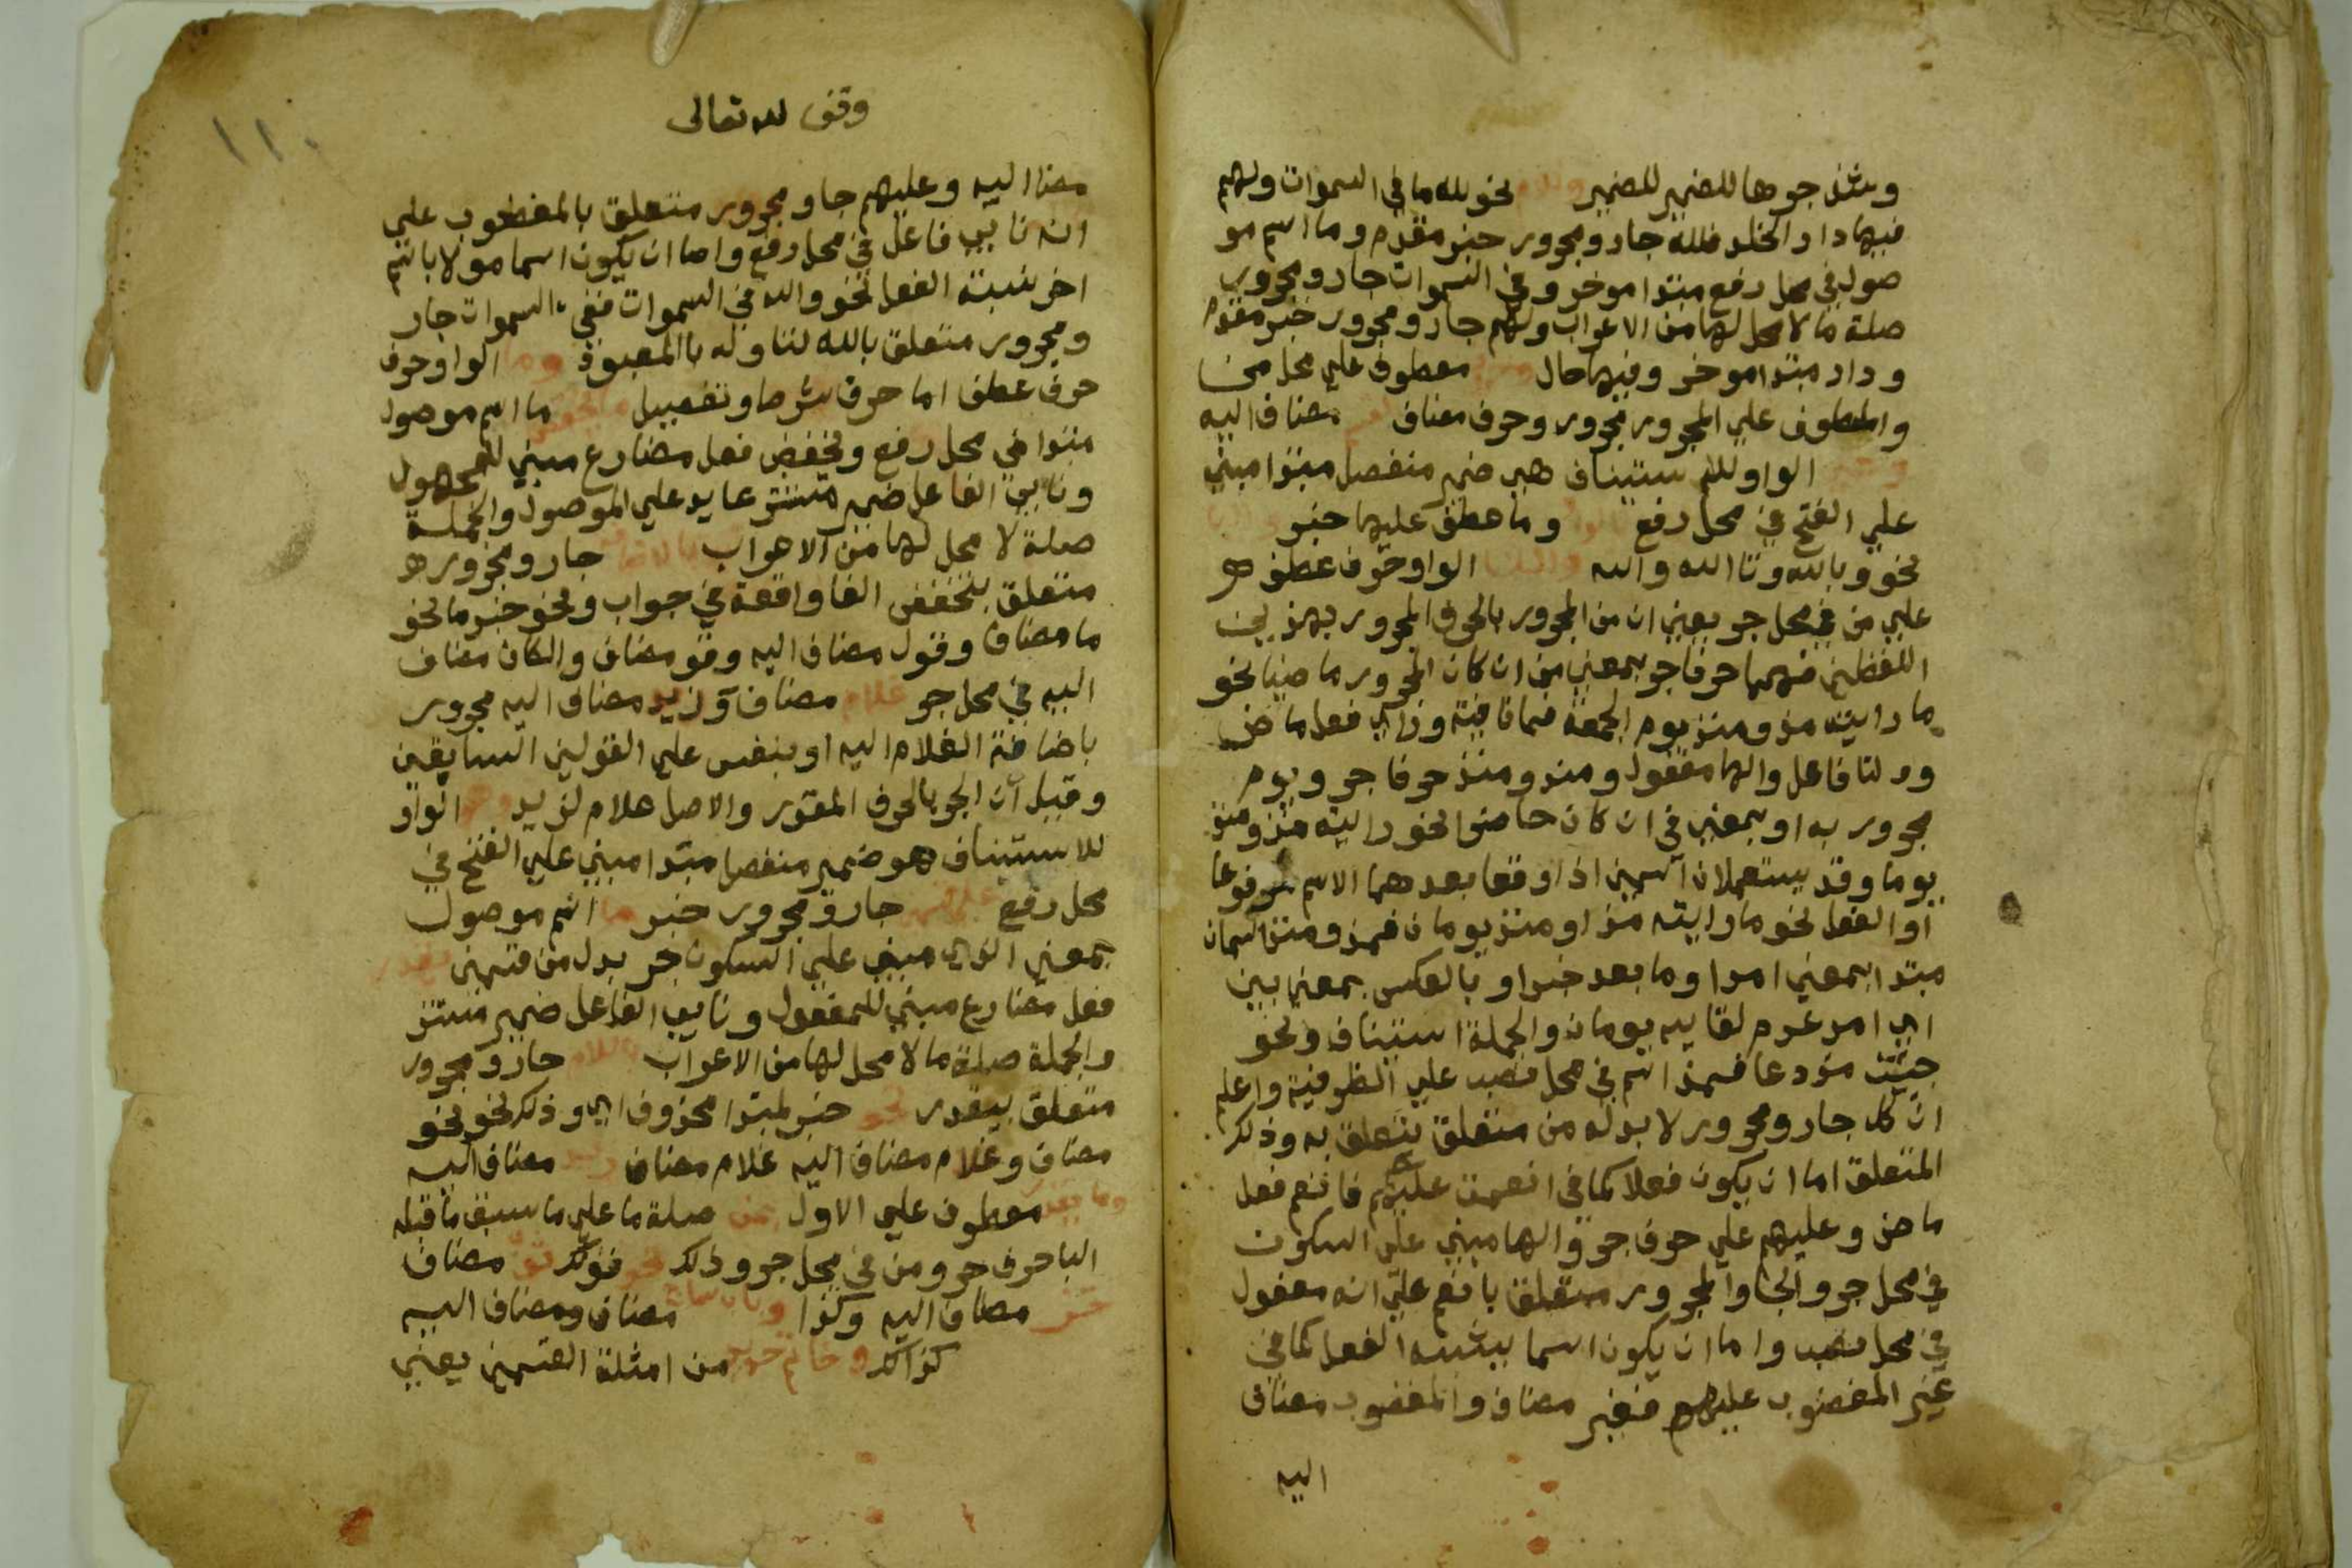 وشذ جرها للضمير للضمير نحو لله ما في السموات ولهم
فيها دار الخلد فلله جار ومجرور خبر مقدم وما اسم مو
صول في محل رفع مبتدا موخر وفي السموات جار ومجرور
صلة ما لا محل لها من الاعراب ولهم جار ومجرور خبر مقدم
ودار مبتدا موخر وفيها حال معطوف علي محل من
والمعطوف علي المجرور مجرور وحرف مضاف مضاف اليه
الواو للاستيناف هي ضمير منفصل مبتدا مبني
علي الفتح في محل رفع وما عطف عليها خبر
نحو وبالله وتا الله والله الواو حرف عطف
علي من في محل جر يعني ان من المجرور بالحرف المجرور بهذين
اللفظين فهما حرفا جر بمعني من ان كان المجرور ماضيا نحو
ما رايته مذ ومنذ يوم الجمعة فما نافية وراي فعل ماض
والتا فاعل والها مفعول ومذ ومنذ حرفا جر ويوم
مجرور به او بمعني في ان كان حاضرا نحو رايته مذ ومنذ
يوما وقد يستعملان اسمين اذا وقعا بعدهما الاسم مرفوعا
او الفعل نحو ما رايته مذ او منذ يومان فمذ ومنذ اسمان
مبتدا بمعني امد او ما بعد خبر او بالعكس بمعني بين
اي امد عدم لقايه يومان والجملة استيناف ونحو
جيت مذ دعا فمذ اسم في محل نصب علي الظرفية واعلم
ان كل جار ومجرور لا بد له من متعلق يتعلق به وذلك
المتعلق اما ان يكون فعلا كما في انعمت عليهم فانعم فعل
ماض وعليهم علي حرف جر والها مبني علي السكون
في محل جر والجار والمجرور متعلق بانعم علي انه مفعول
في محل نصب واما ان يكون اسما يشبه الفعل كما في
غير المغضوب عليهم فغير مضاف والمغضوب مضاف
اليه
١١٠
وقف لله تعالى
مضا اليه وعليهم جار ومجرور متعلق بالمغضوب علي
انه نايب فاعل في محل رفع واما ان يكون اسما مولا باسم
اخر يشبه الفعل نحو والله في السموات ففي السموات جار
ومجرور متعلق بالله لتاوله بالمعبود وما الواو حرف
حرف عطف اما حرف شرط وتفصيل ما يخفض ما اسم موصول
مبتدا في محل رفع ويخفض فعل مضارع مبني للمجهول
ونايب الفاعل ضمير مستتر عايد علي الموصول والجملة
صلة لا محل لها من الاعراب بالاضافة جار ومجرور
متعلق بيخفض الفا واقعة في جواب ونحو خبر ما نحو
ما مضاف وقول مضاف اليه وقو مضاف والكاف مضاف
اليه في محل جر غلام مضاف وزيد مضاف اليه مجرور
باضافة الغلام اليه او بنفس علي القولين السابقين
وقيل ان الجر بالحرف المقدر والاصل غلام لزيد وهو الواو
للاستيناف هو ضمير منفصل مبتدا مبني علي الفتح في
محل رفع علي قسمين جار ومجرور خبر ما اسم موصول
بمعني الذي مبني علي السكون جر بدل من قسمين يقدر
فعل مضارع مبني للمفعول ونايب الفاعل ضمير مستتر
والجملة صلة ما لا محل لها من الاعراب باللام جار ومجرور
متعلق بيقدر نحو خبر لمبتدا محذوف اي وذلك نحو نحو
مضاف وغلام مضاف اليه غلام مضاف زيد مضاف اليه
وما يقدر معطوف علي الاول بمن صلة ما علي ما سبق ما قبله
البا حرف جر ومن في محل جر وذلك نحو قولك ثوب مضاف
خز مضاف اليه وكذا وباب ساج مضاف ومضاف اليه
كذلك وخاتم حديد من امثلة القسمين يعني